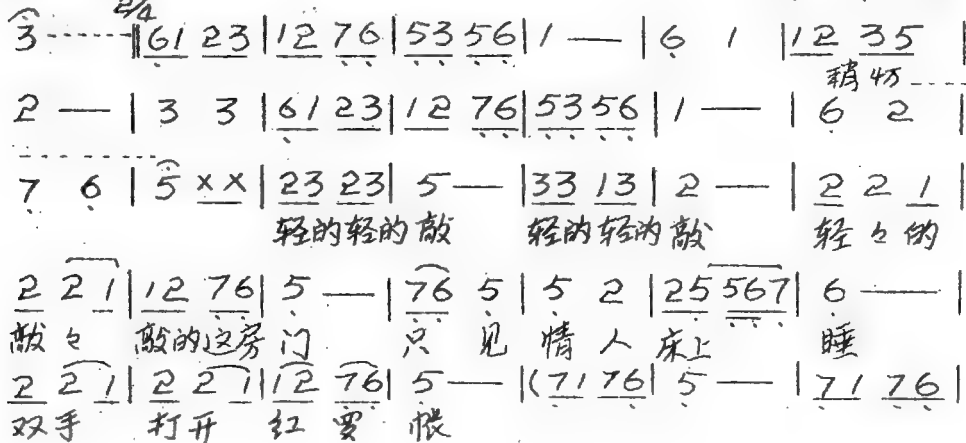 2/4
3 - - - - - - ‖ 61 23 | 12 76 | 53 56 | 1 — | 6 1 | 12 35 |
稍切 - - - -
2 — | 3 3 | 61 23 | 12 76 | 53 56 | 1 — | 6 2 |
7 6 | 5 ×× | 23 23 | 5 — | 33 13 | 2 — | 2 2 1 |
轻的轻的敲 轻的轻的敲 轻々的
2 2 1 | 12 76 | 5 — | 76 5 | 5 2 | 25 567 | 6 — |
敲々 敲的这房门 只见情人床上 睡
2 2 1 | 2 2 1 | 12 76 | 5 — | (71 76 | 5 — | 71 76 |
双手 打开 红 帐